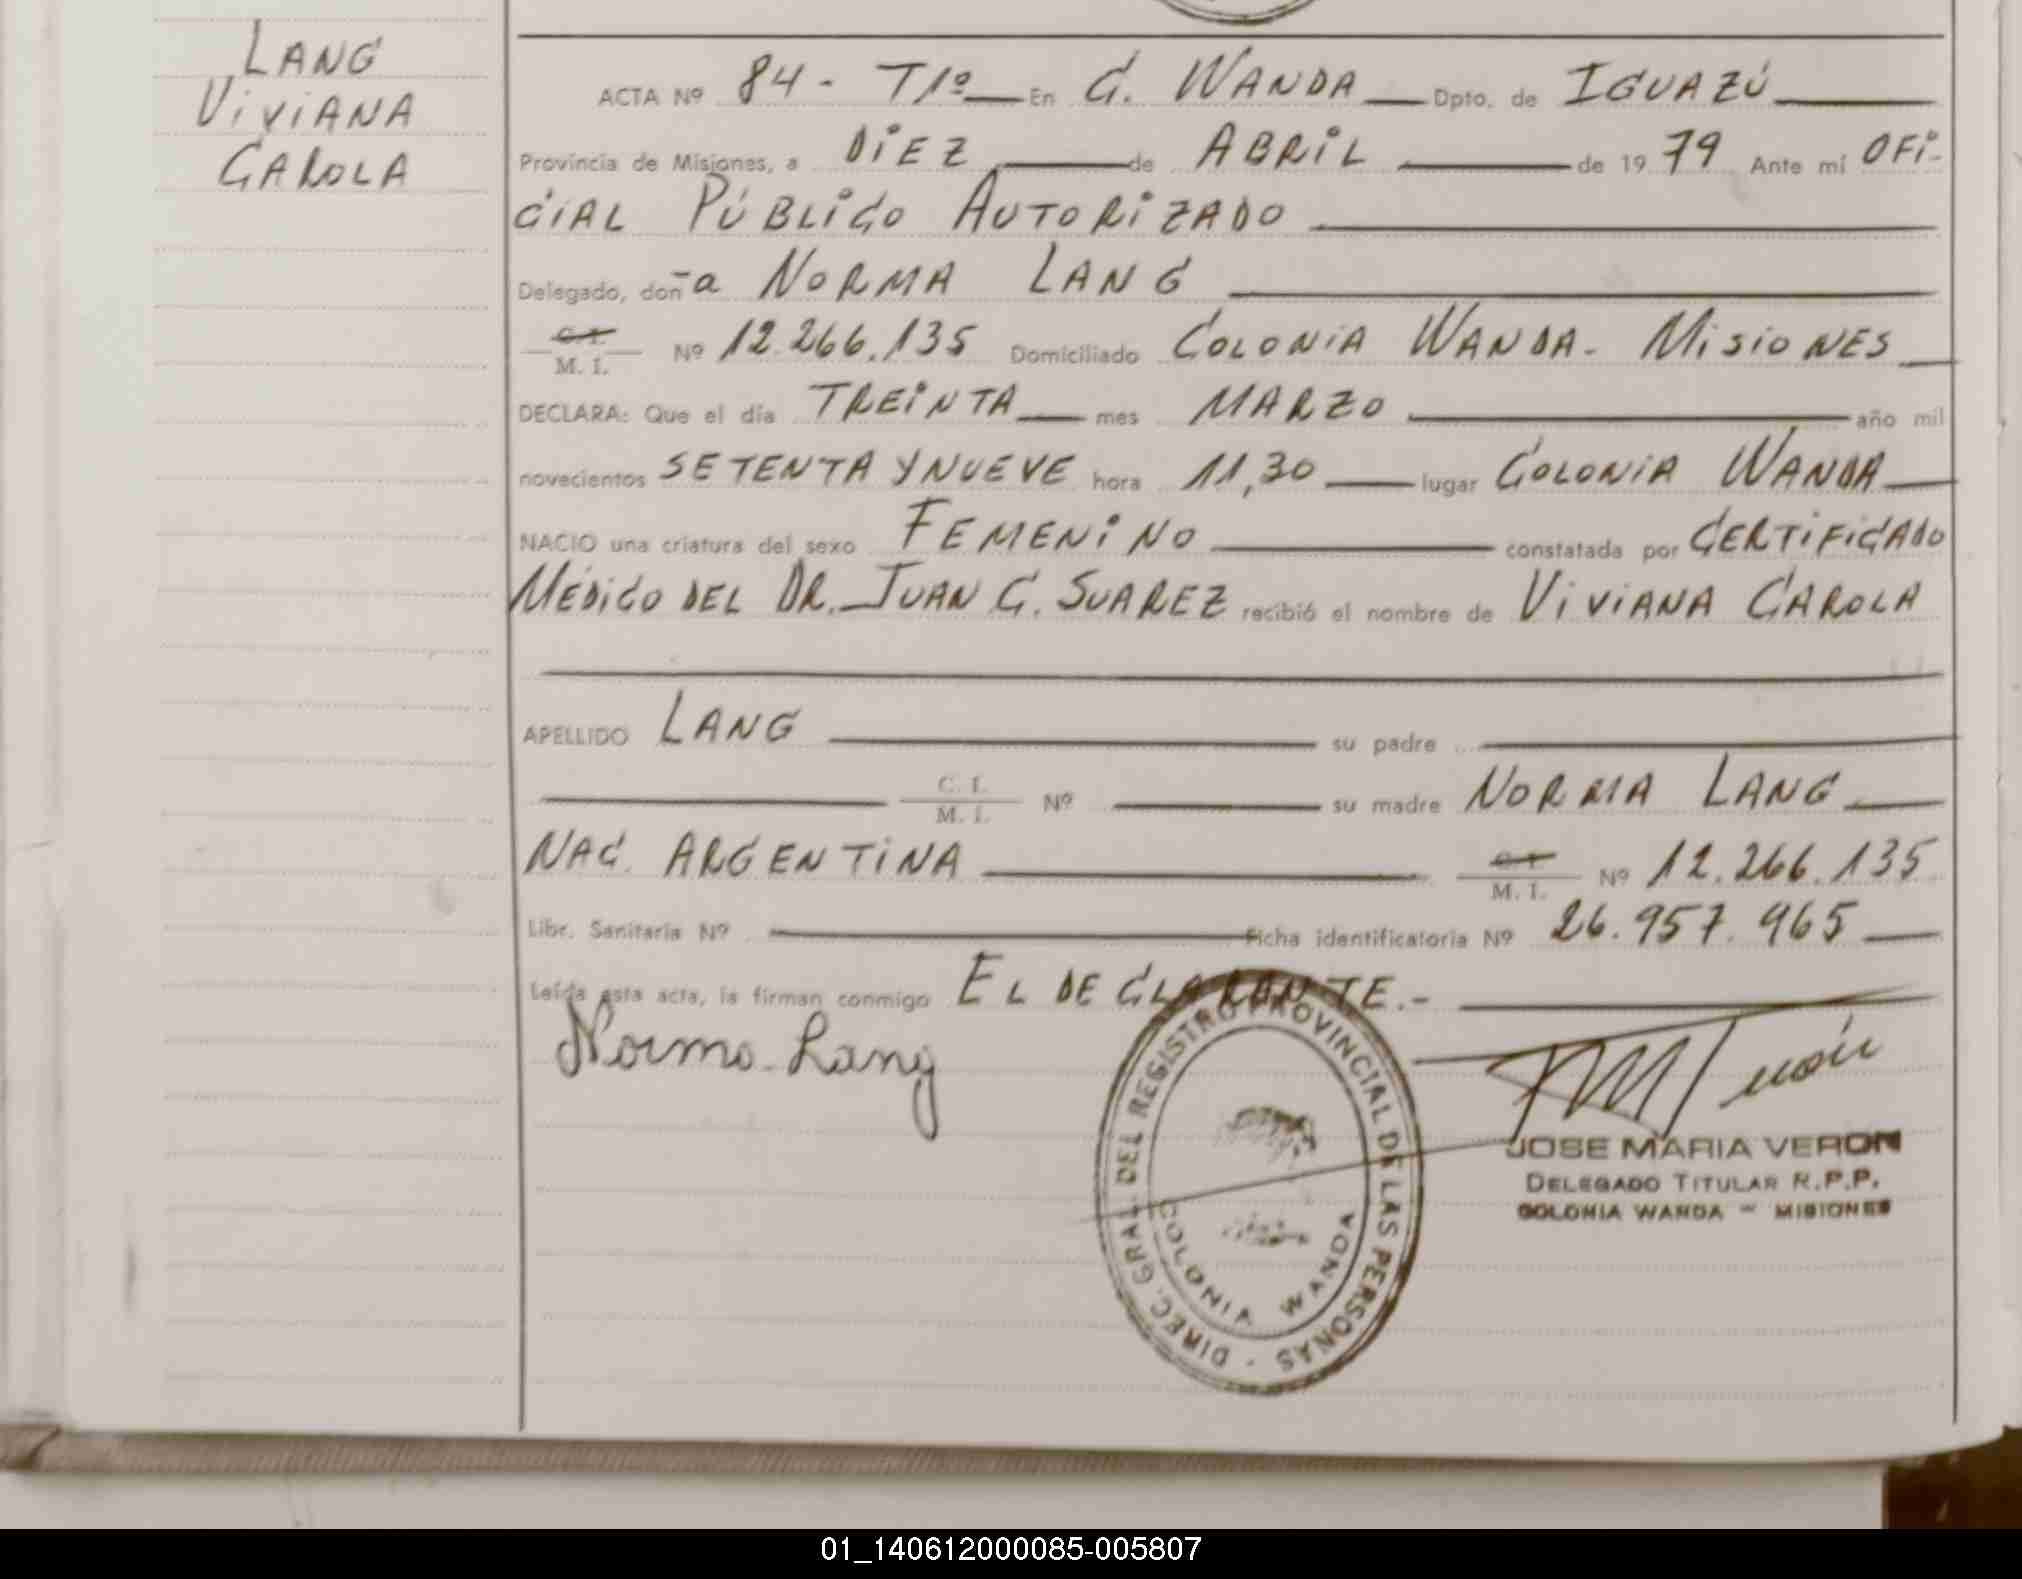 LANG
VIVIANA
CAROLA
ACTA Nº 84 - T1º En C. WANDA Dpto. de IGUAZÚ
Provincia de Misiones, a DIEZ de ABRIL de 1979 Ante mí OFI-
CIAL PÚBLICO AUTORIZADO
Delegado, doña NORMA LANG
C. I.
M. I. Nº 12.266.135 Domiciliado COLONIA WANDA - MISIONES
DECLARA: Que el día TREINTA mes MARZO año mil
novecientos SETENTA Y NUEVE hora 11,30 lugar COLONIA WANDA
NACIO una criatura del sexo FEMENINO constatada por CERTIFICADO
MÉDICO DEL DR. JUAN C. SUAREZ recibió el nombre de VIVIANA CAROLA
APELLIDO LANG su padre
C. I.
M. I. Nº su madre NORMA LANG
NAC. ARGENTINA C. I.
M. I. Nº 12.266.135
Libr. Sanitaria Nº Ficha identificatoria Nº 26.957.965
Leída esta acta, la firman conmigo EL DECLARANTE.-
Norma Lang
DIREC. GRAL. DEL REGISTRO PROVINCIAL DE LAS PERSONAS -
COLONIA WANDA
JOSE MARIA VERON
DELEGADO TITULAR R.P.P.
COLONIA WANDA - MISIONES
01_140612000085-005807